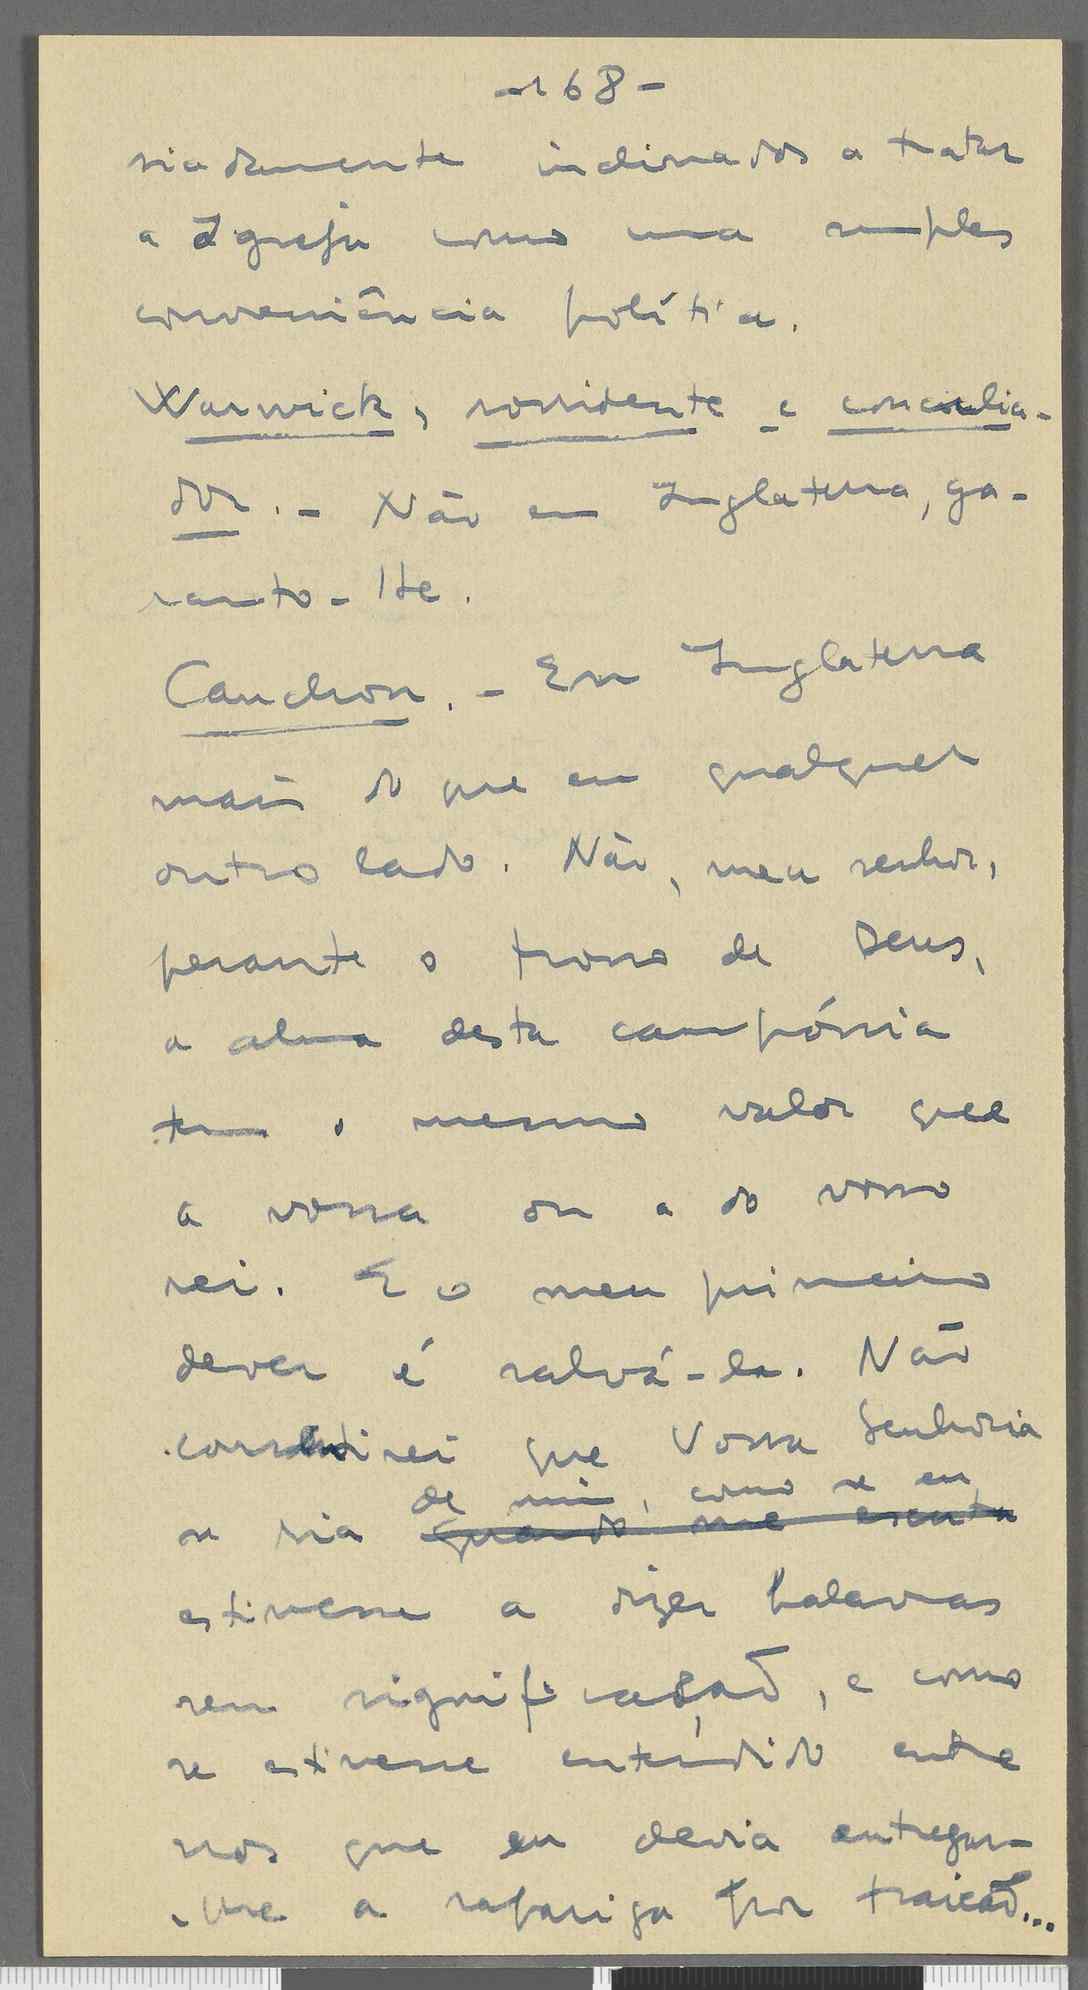 -168-
siadamente inclinados a tratar
a Igreja como uma simples
conveniência política.
Warwick, sorridente e concilia-
dor. - Não em Inglaterra, ga-
ranto-lhe.
Cauchon. - Em Inglaterra
mais do que em qualquer
outro lado. Não, meu senhor,
perante o trono de Deus,
a alma desta campónia
tem o mesmo valor que
a vossa ou a do vosso
rei. E o meu primeiro
dever é salvá-la. Não
consentirei que Vossa Senhoria
de mim, como se eu
se ria quando me escuta
estivesse a dizer palavras
sem significação, e como
se estivesse entendido entre
nós que eu devia entregar-
-lhe a rapariga por traição...